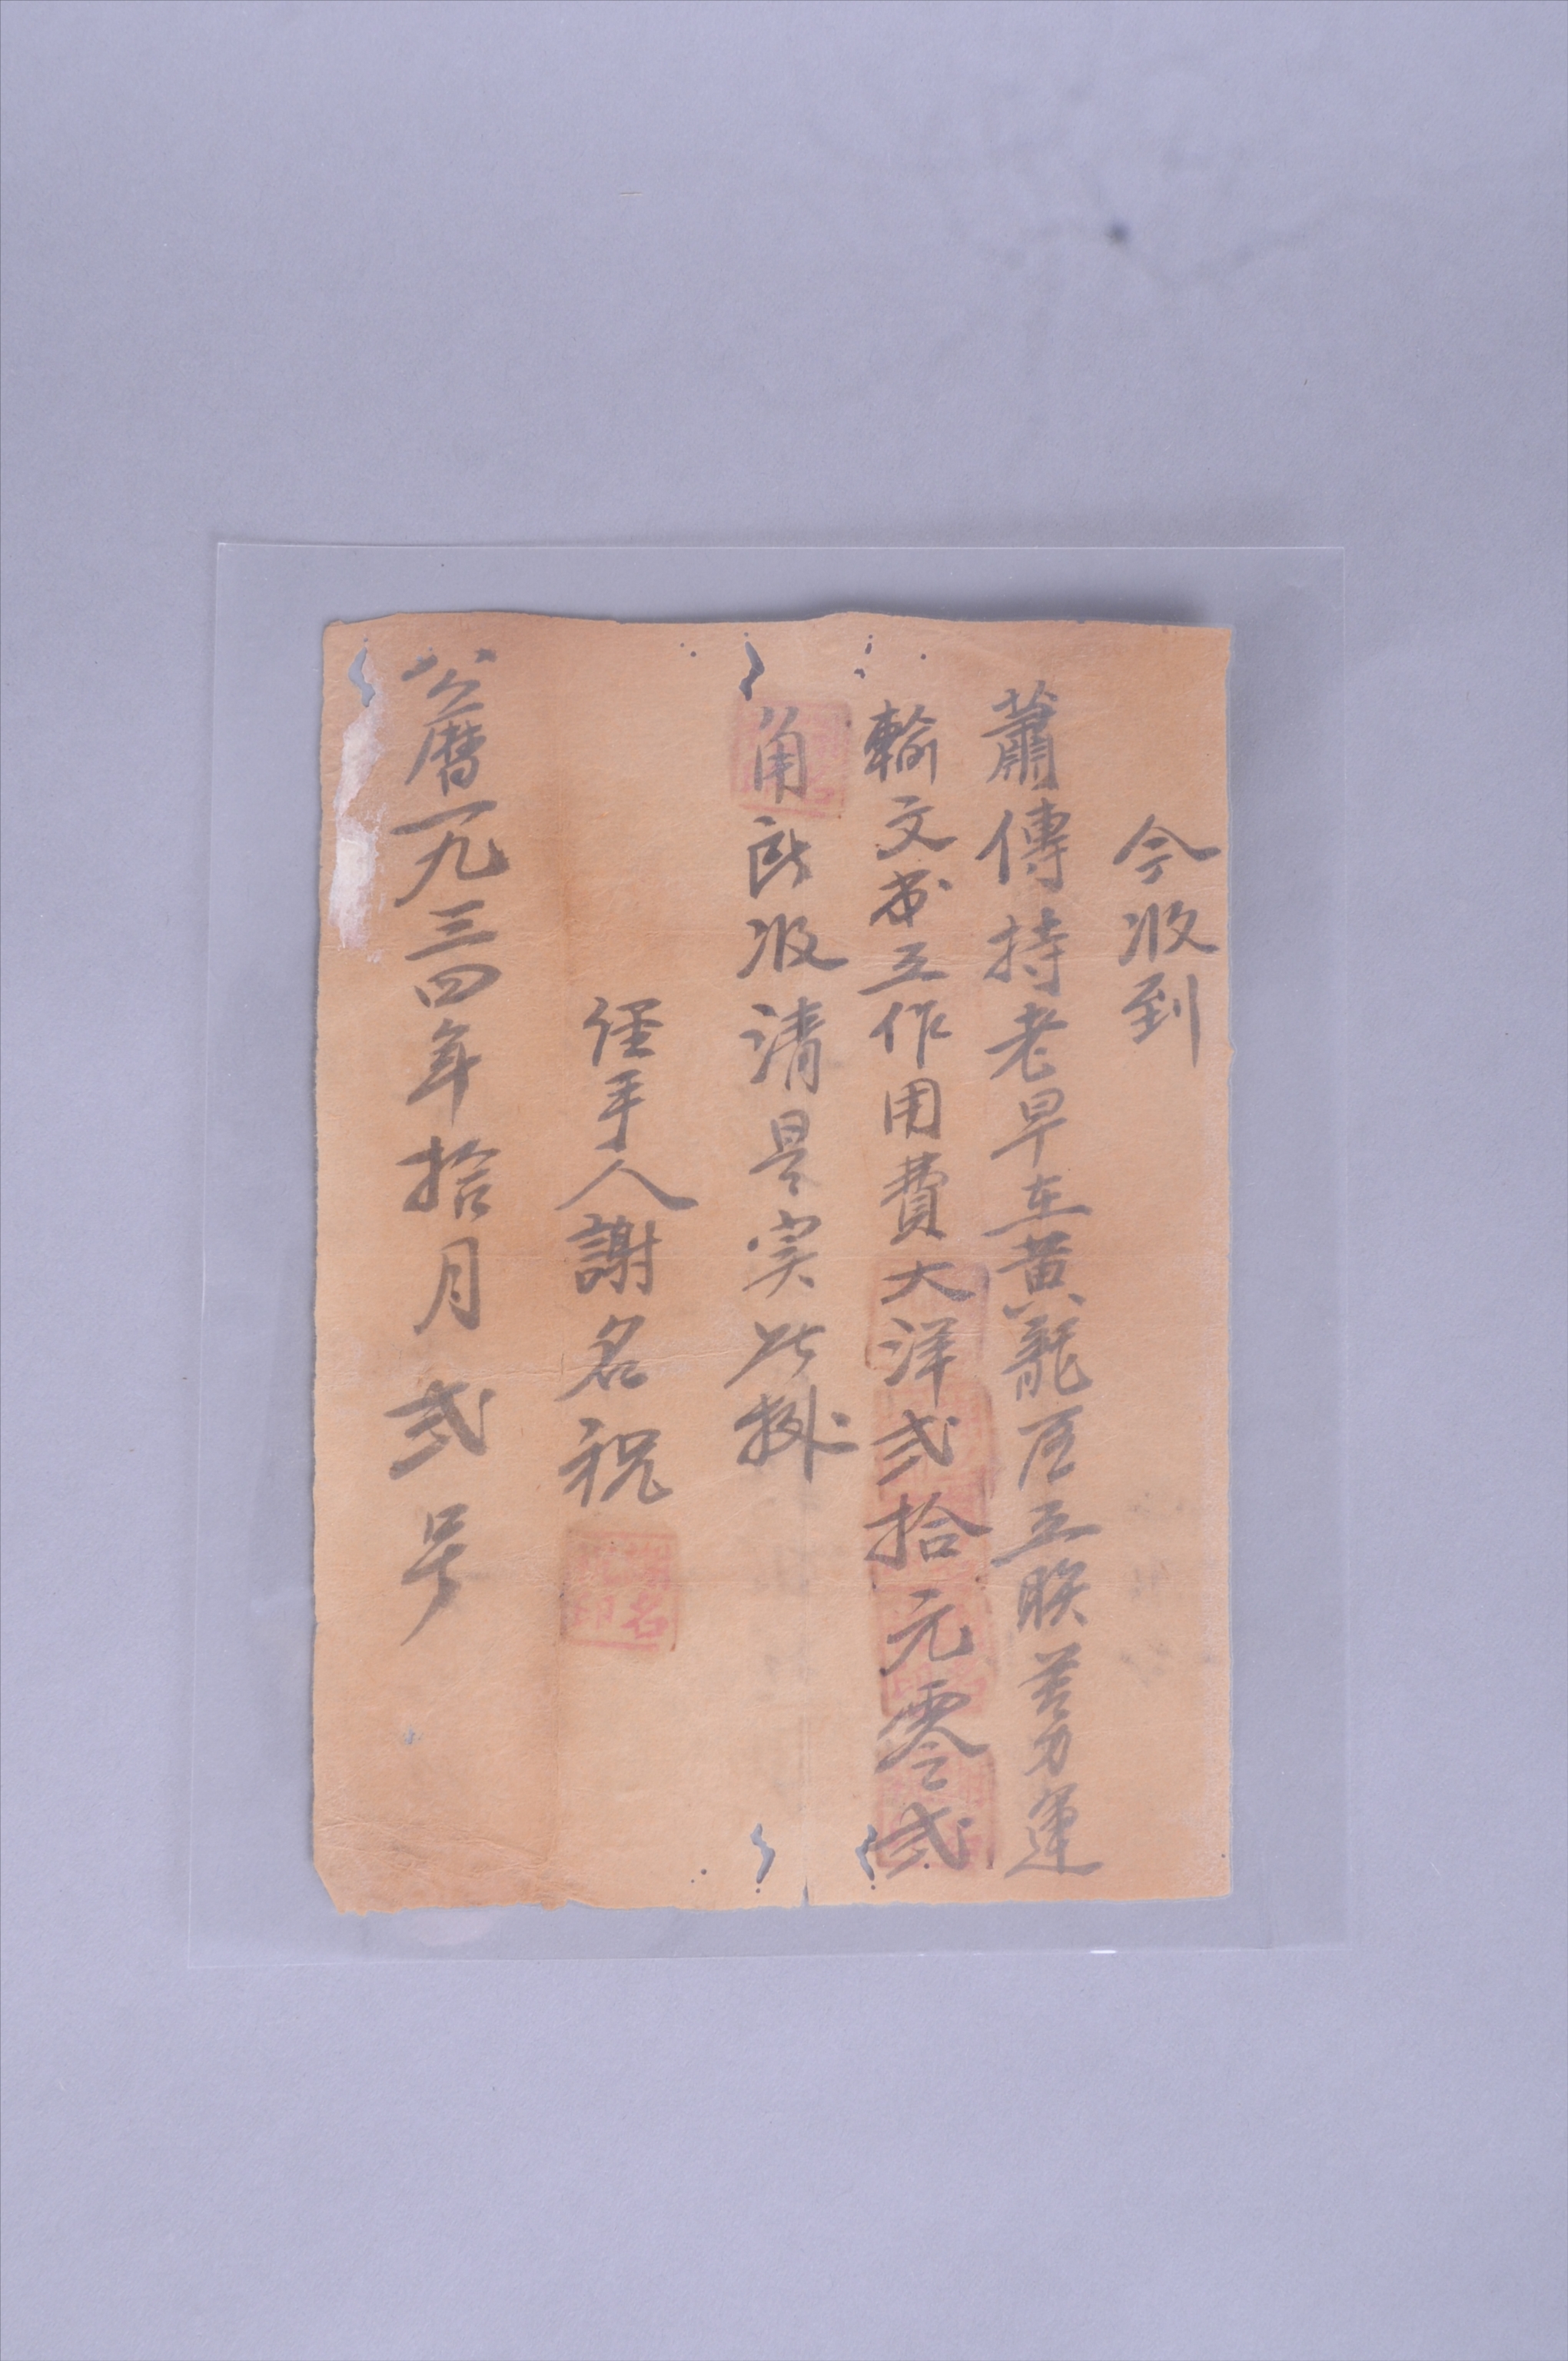 今收到
蕭傳持老早在黄龍區工联苦力運
輸文书工作用費大洋弍拾元零弍
角所收清是实此抛
经手人謝名祝
公曆一九三四年拾月弍号
謝名祝印